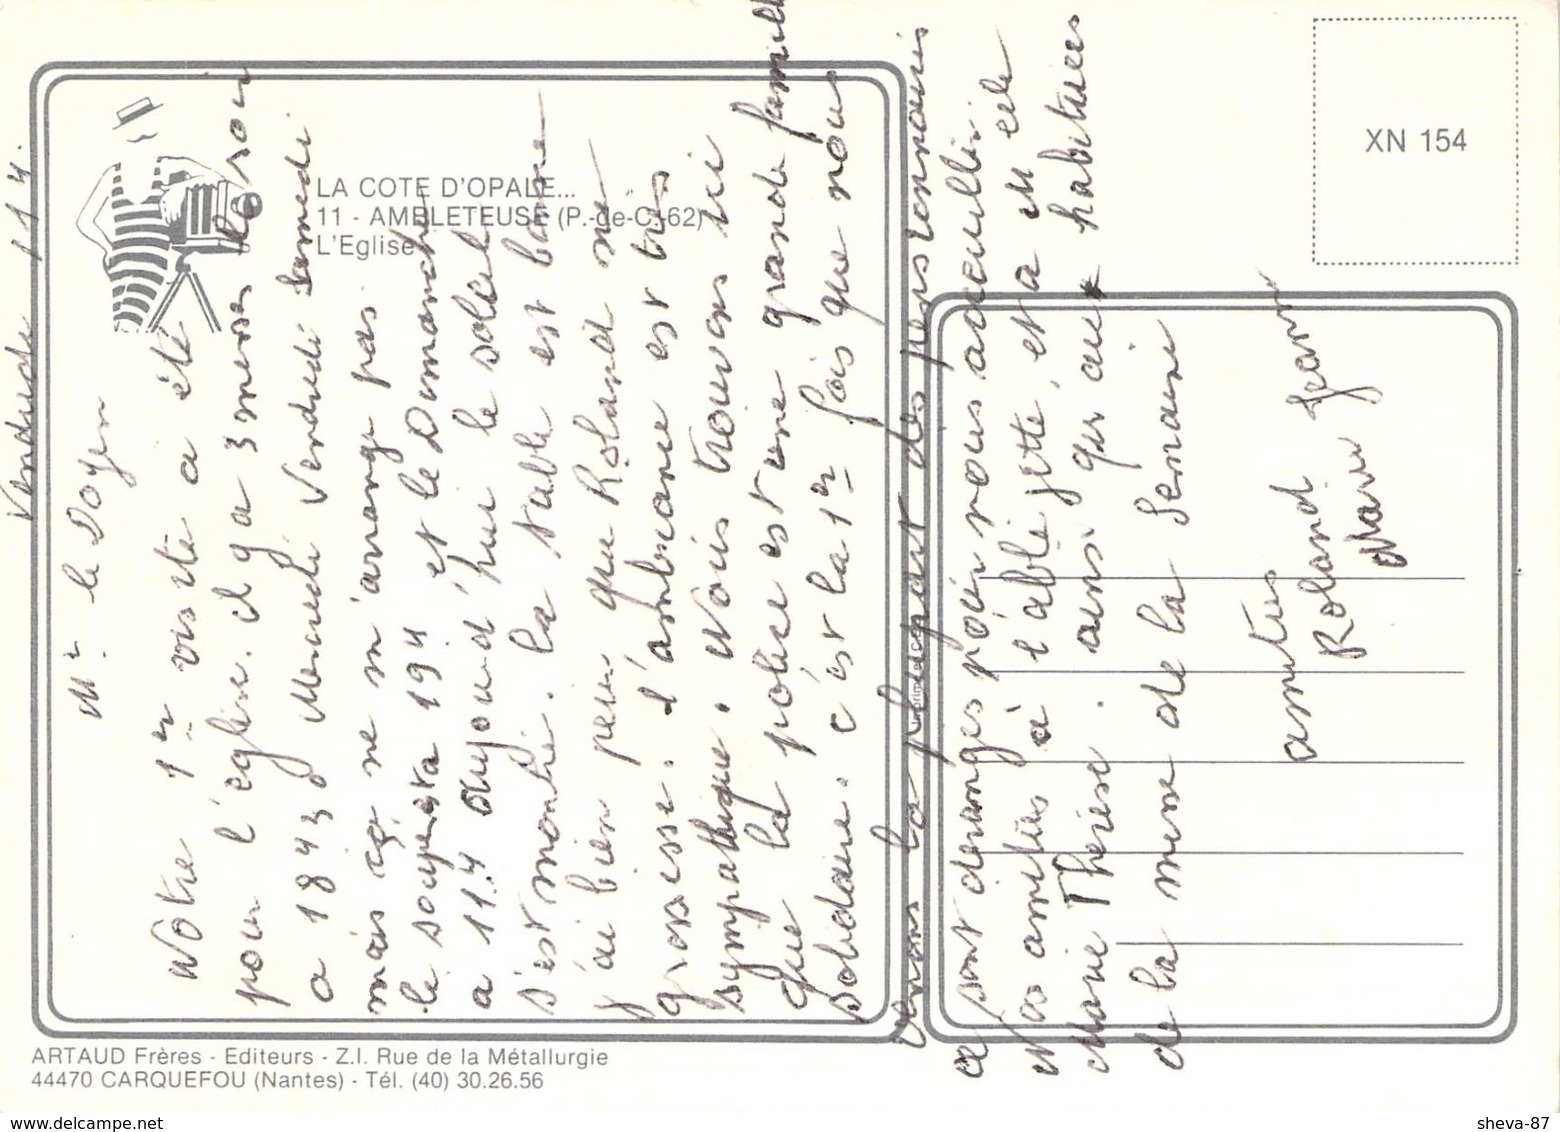 XN 154
LA COTE D'OPALE...
11 - AMBLETEUSE (P.-de-C.-62)
L'Eglise
Vendredi 11 4.
Mr le Doyen
Notre 1er visite a été
pour l'église. il y a 3 messes le soir
a 18 4 3 Mercredi Vendredi Samedi
mais ça ne m'arrange pas
le souper a 19 4 et le Dimanche
a 11.4 aujourd'hui le soleil
s'est montré. la table est bonne
j'ai bien peur que Roland ne
grossesse. l'ambiance est très
sympathique. Nous trouvons ici
que la police est une grande famille
solidaire. c'est la 1er fois que nous
venons la plupart des pensionnaires
ce sont deranges pour nous accueillir
Nos amitiés à l'abbé et a Melle
Marie Therese. ainsi qu'aux habituées
de la messe de la Semaine
amities
Roland Jean
ARTAUD Frères - Editeurs - Z.I. Rue de la Métallurgie
44470 CARQUEFOU (Nantes) - Tél. (40) 30.26.56
www.delcampe.net
sheva-87